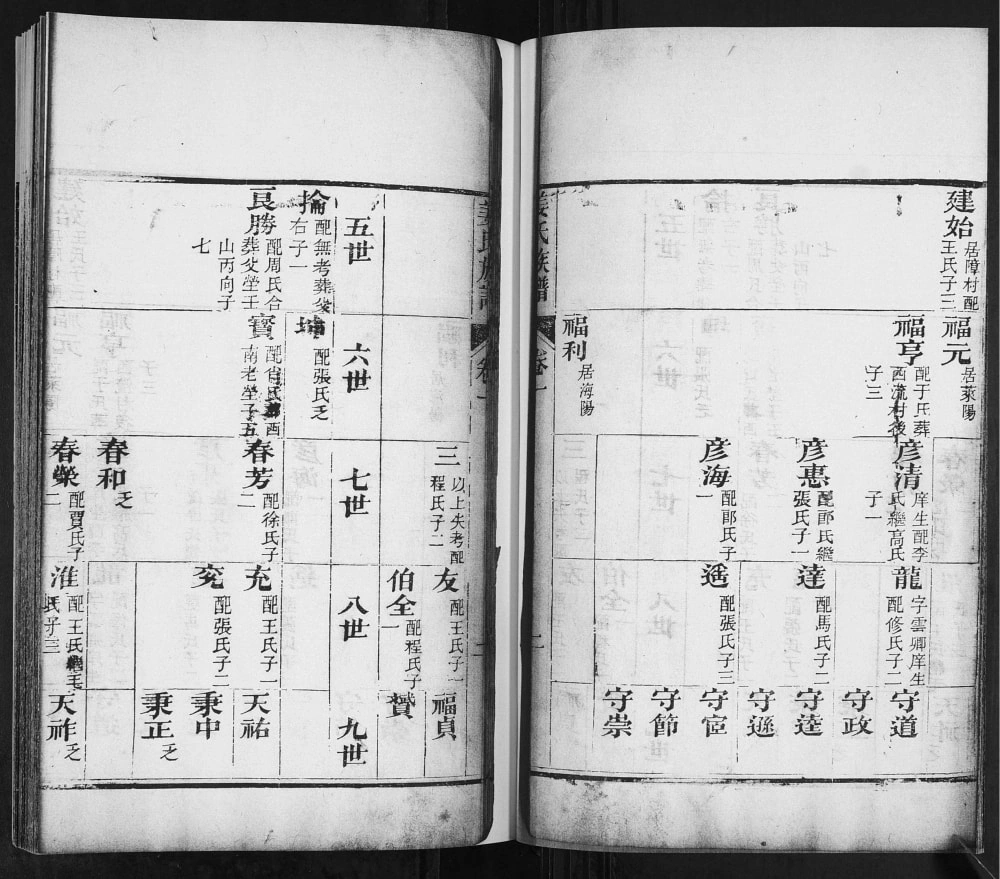 建始
居障村配
王氏子三
福元
居萊陽
福亨
配于氏葬
西流村後
子三
彥清
庠生配李
氏繼高氏
子一
龍
字雲卿庠生
配修氏子二
守道
守政
彥惠
配邴氏繼
張氏子一
達
配馬氏子二
守達
守遜
彥海
配邴氏子
一
遜
配張氏子三
守宦
守節
守崇
福利
居海陽
姜氏族譜
卷一
二
三
以上失考配
程氏子二
友
配王氏子一
福貞
伯全
配程氏子
一
贊
五世
六世
七世
八世
九世
掄
配無考葬
右子一
坤
配張氏乏
良勝
配周氏合
葬父塋壬
山丙向子
七
寶
南老塋子五
春芳
配徐氏子
二
充
配王氏子一
天祐
兖
配張氏子二
秉中
秉正
乏
春和
乏
春榮
配賈氏子
二
淮
配王氏繼王
氏子三
天祚
乏